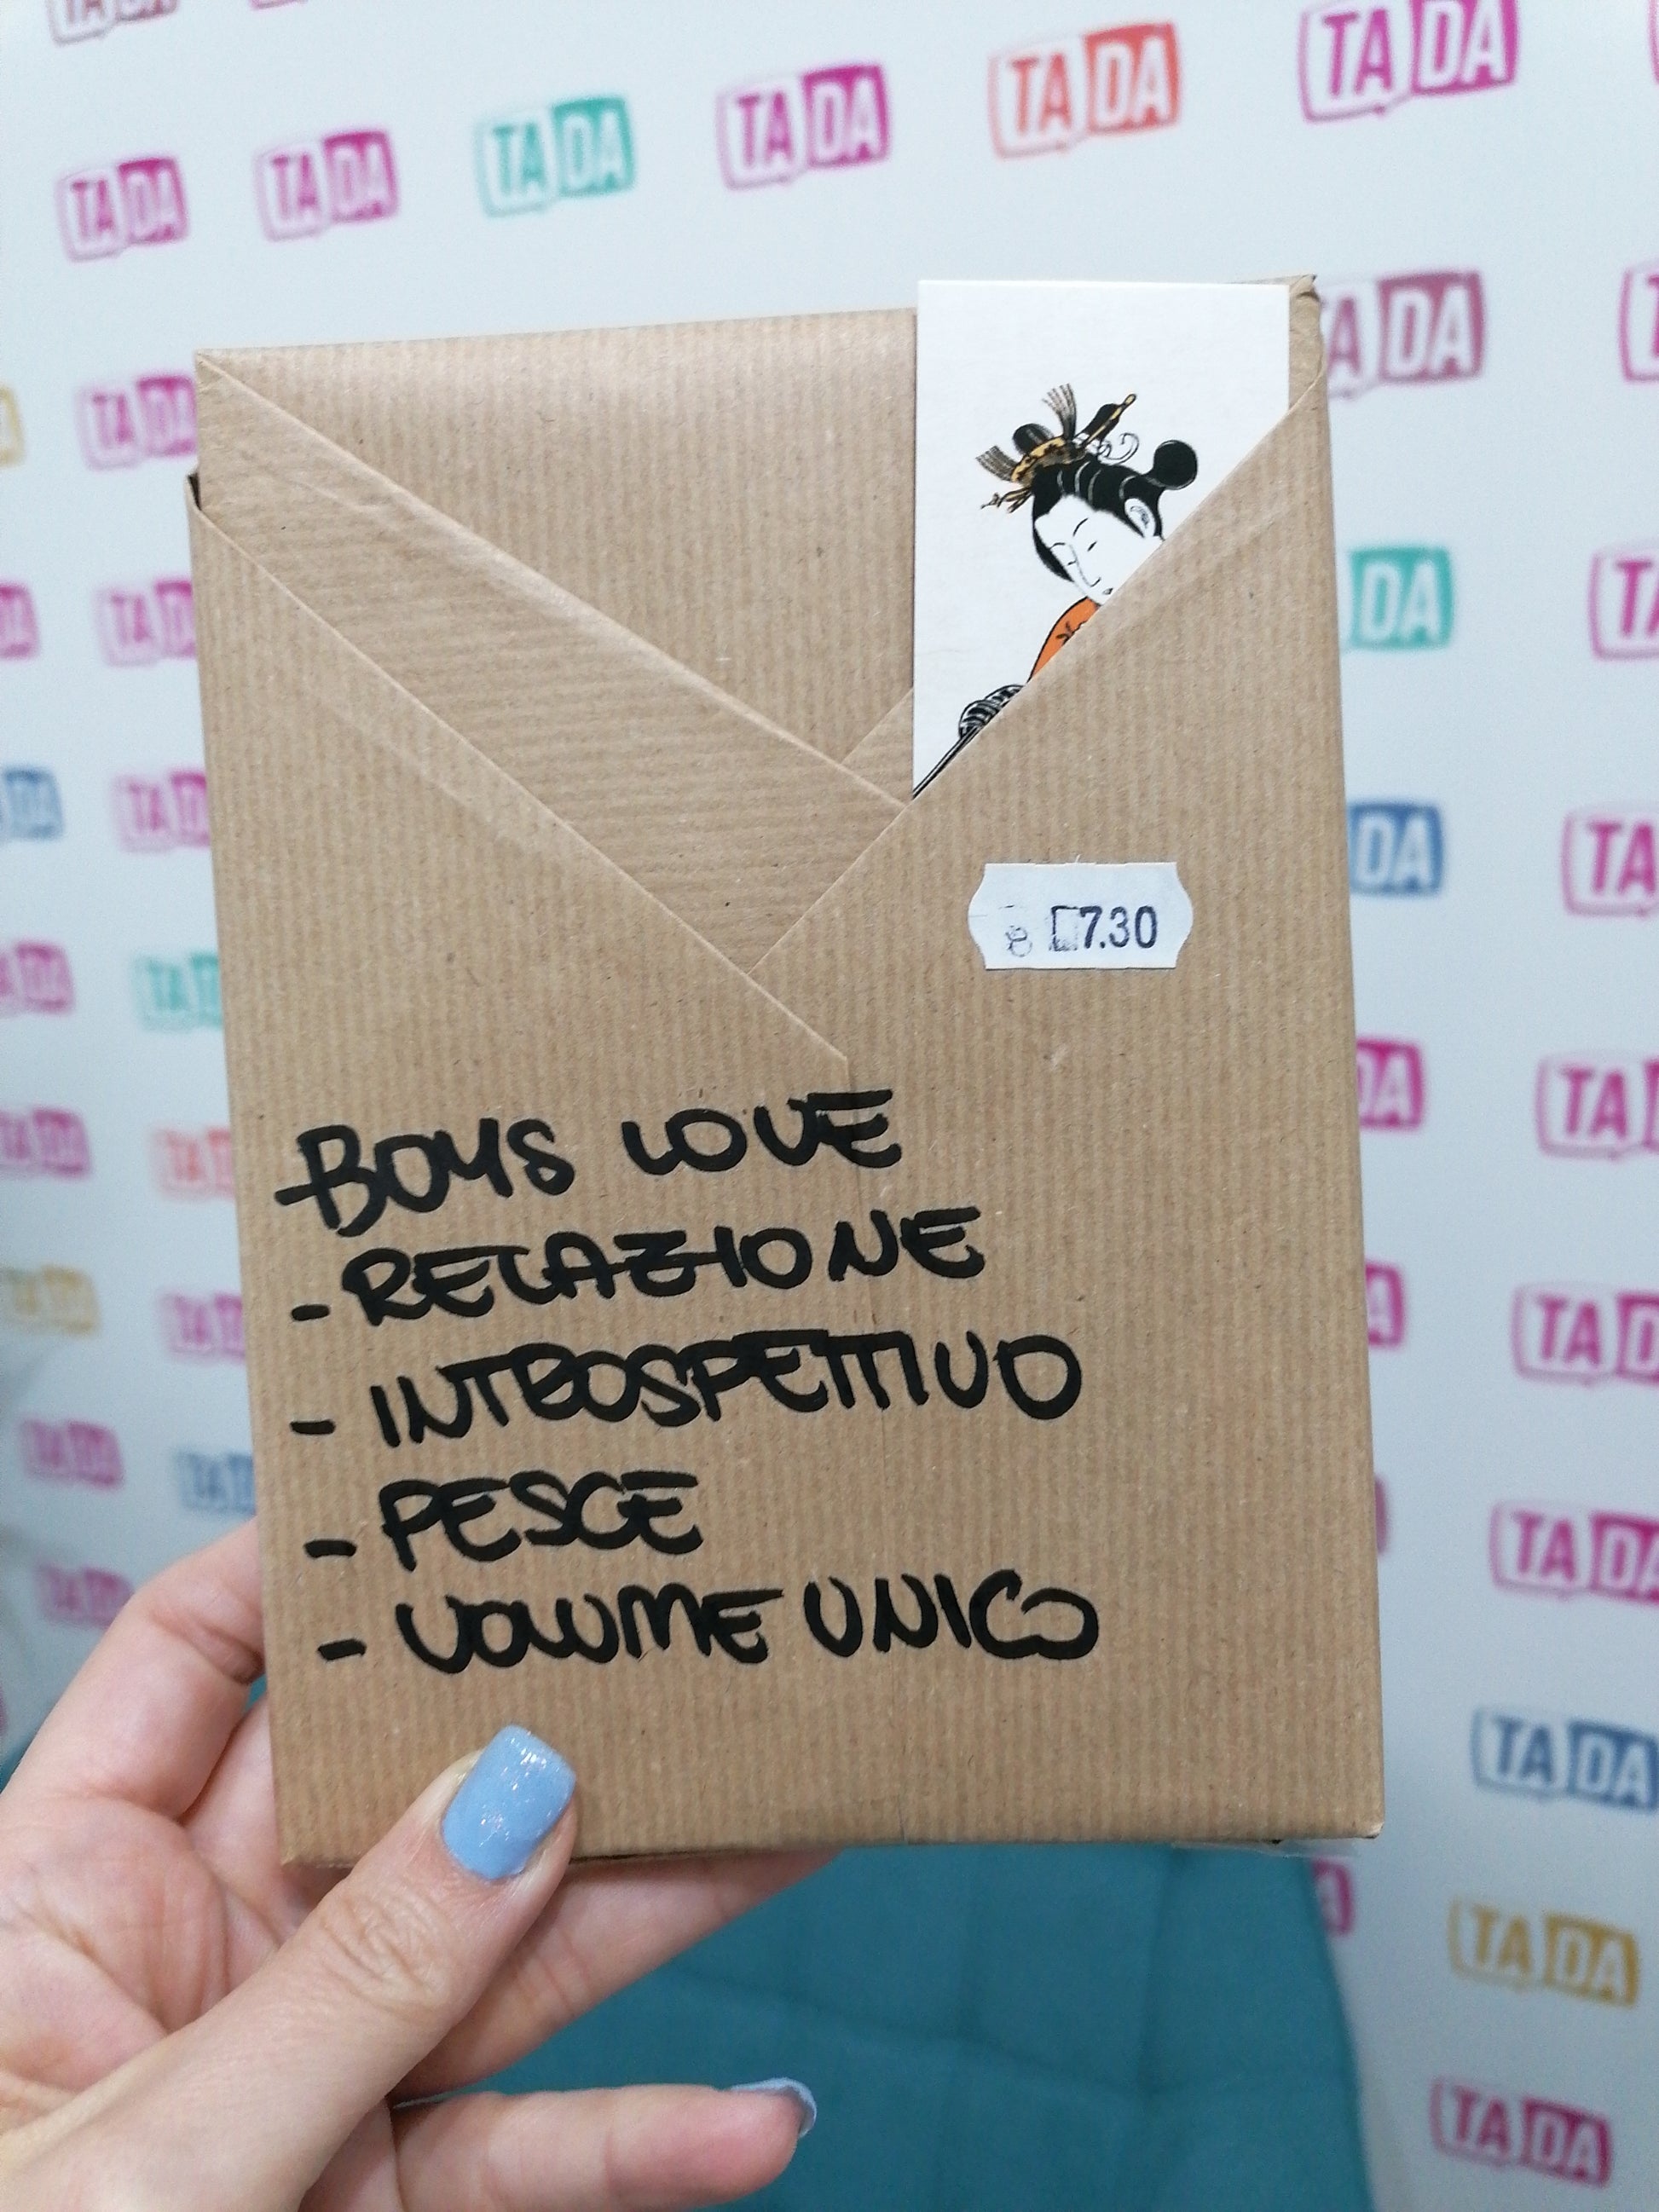 TADA TADA TADA TADA TADA TADA
7.30
BOYS LOVE
- RELAZIONE
- INTROSPETTIVO
- PESCE
- VOLUME UNICO